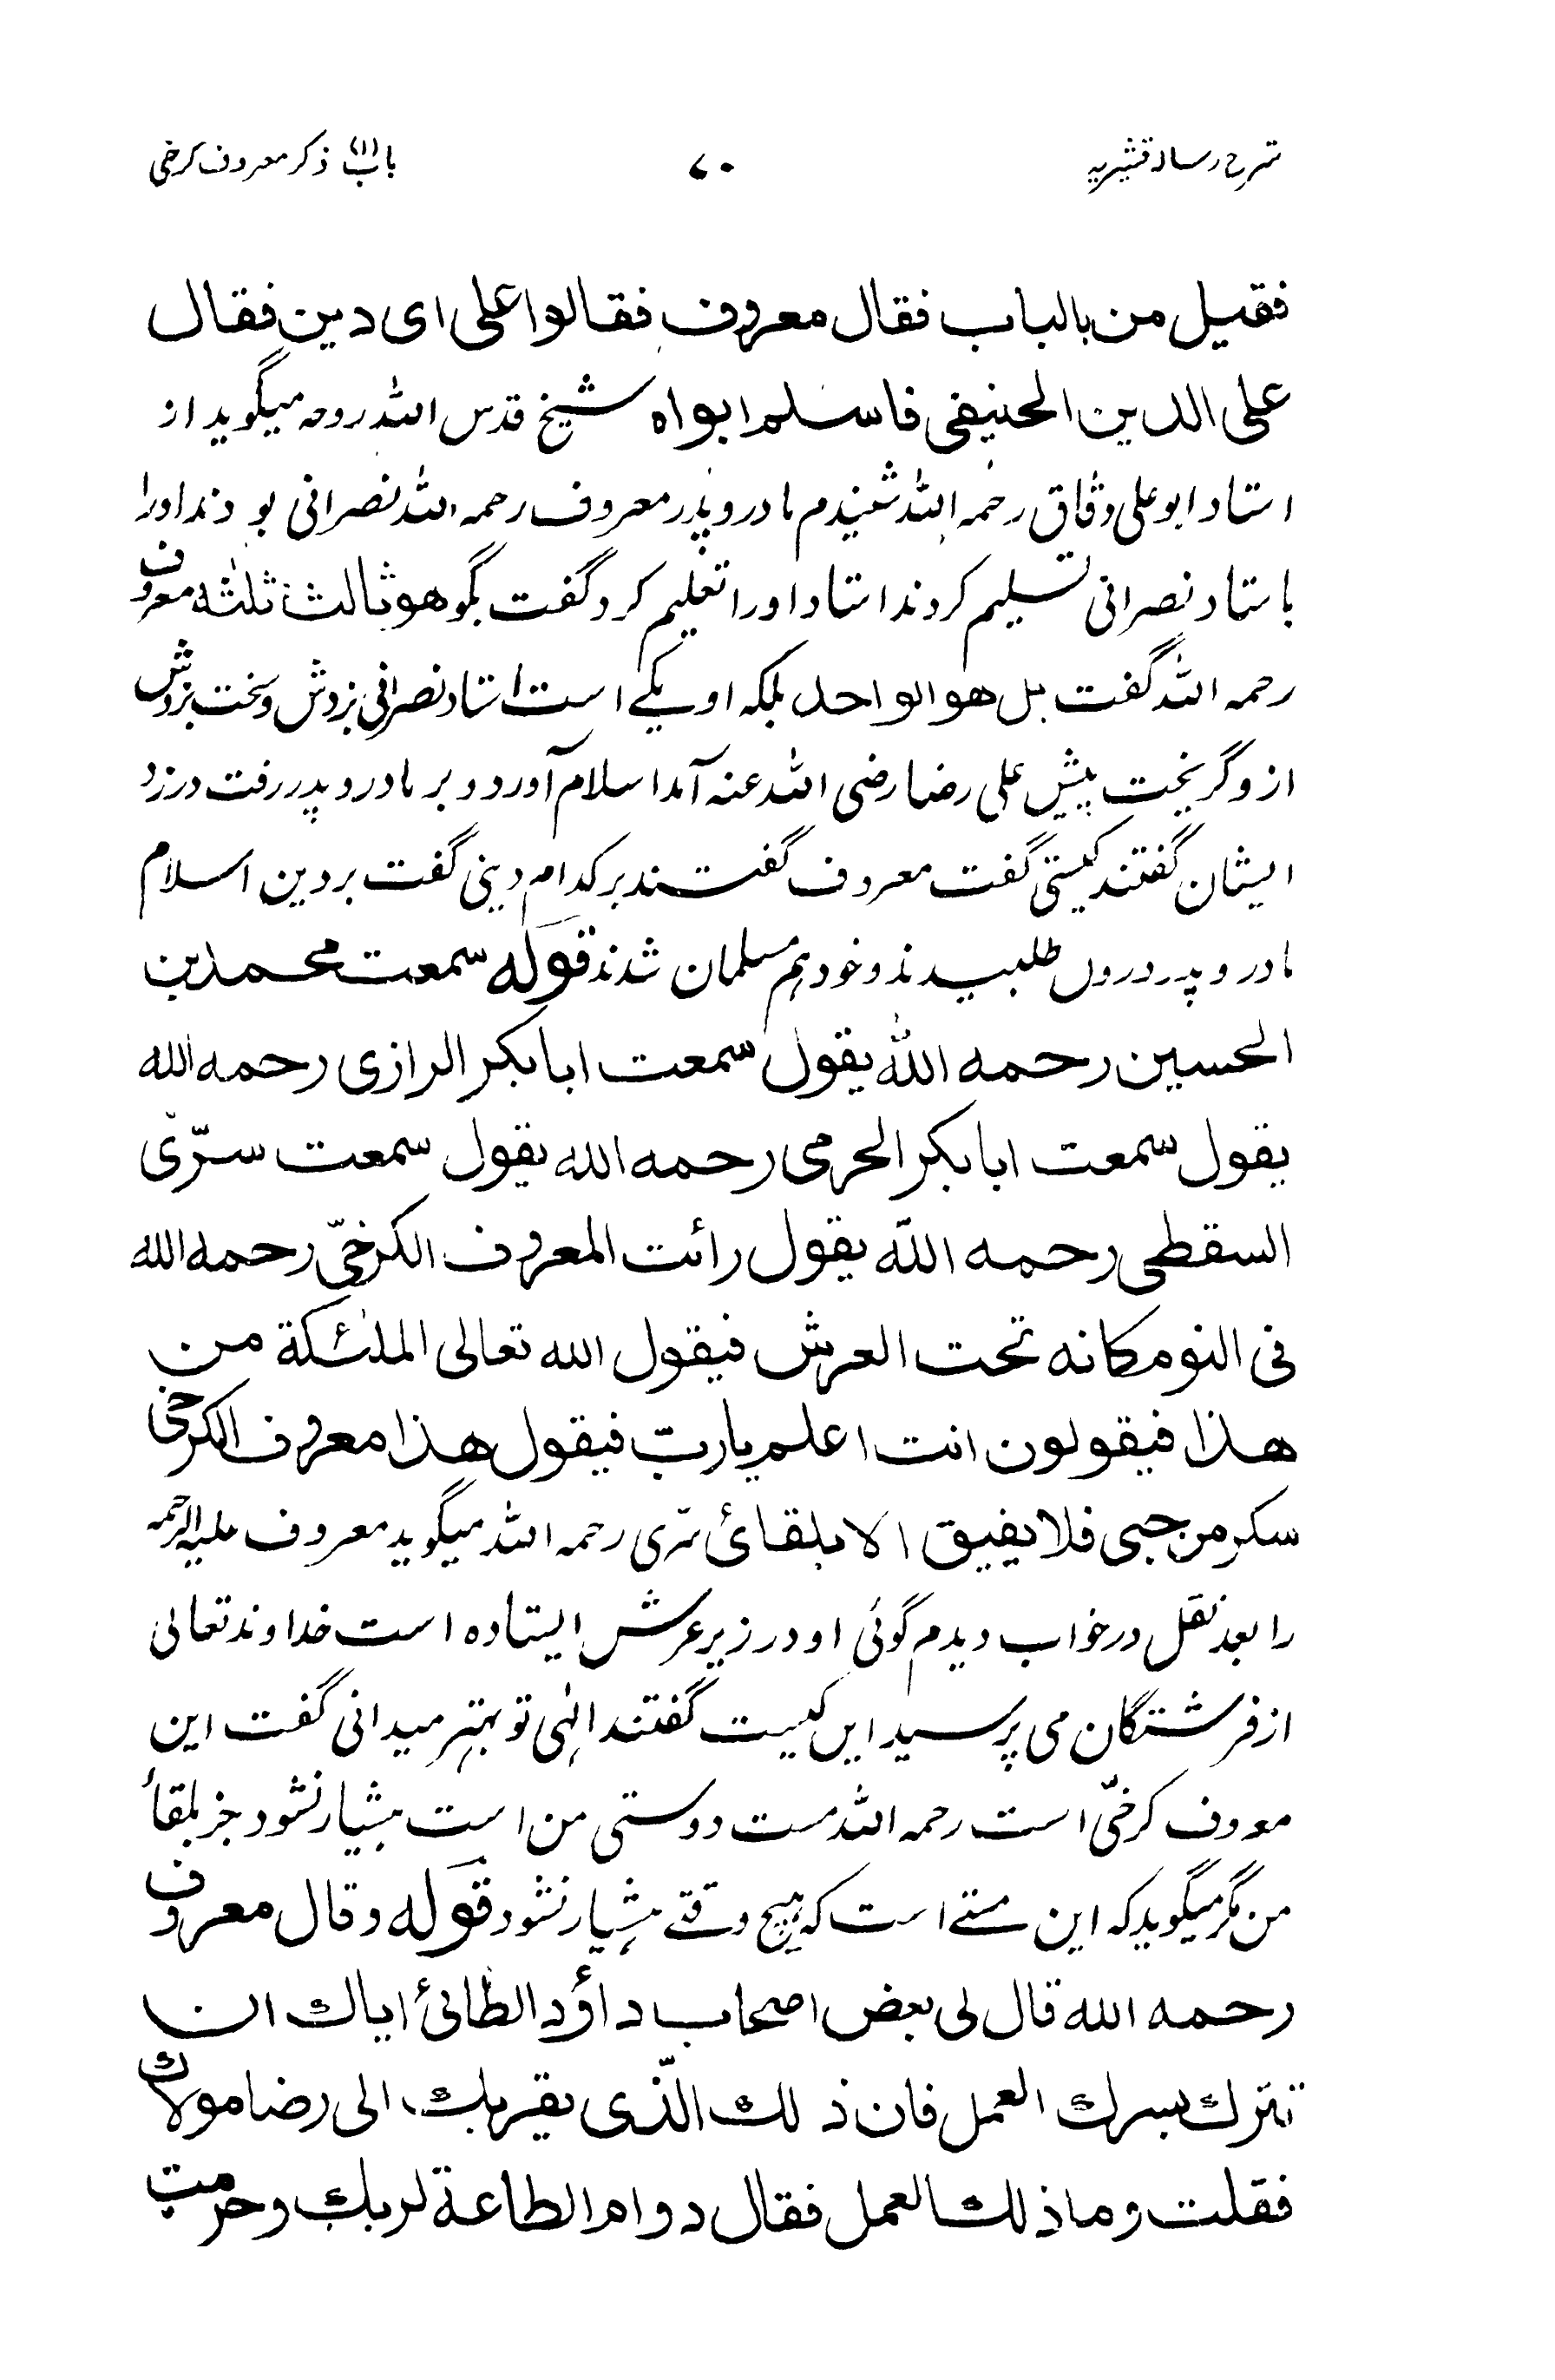 شرح رساله قشیریه ۷۰ باب (۱) ذکر معروف کرخی
فقیل من بالباب فقال معروف فقالوا علی ای دین فقال
علی الدین الحنیفی فاسلم ابواه شیخ قدس الله روحه میگوید از
استاد ابو علی دقاق رحمه الله شنیدم مادر و پدر معروف رحمه الله نصرانی بودند او را
باستاد نصرانی تسلیم کردند استاد او را تعلیم کرد گفت بگو هو ثالث ثلٰثة معروف
رحمه الله گفت بل هو الواحد بلکه او یکے است استاد نصرانی بزدش و سخت بزدش
ازو گریخت پیش علی رضا رضی الله عنه آمد اسلام آورد و بر مادر و پدر رفت در زد
ایشان گفتند کیستی گفت معروف گفتند بر کدام دینی گفت بر دین اسلام
مادر و پدر درون طلبیدند و خود هم مسلمان شدند قوله سمعت محمد بن
الحسین رحمه الله یقول سمعت ابا بکر الرازی رحمه الله
یقول سمعت ابا بکر الحرمی رحمه الله یقول سمعت سرّی
السقطی رحمه الله یقول رائت المعروف الکرخیّ رحمه الله
فی النوم کانه تحت العرش فیقول الله تعالی الملٰئکة من
هذا فیقولون انت اعلم یا ربّ فیقول هذا معروف الکرخی
سکر من حبی فلا یفیق الا بلقائ سری رحمه الله میگوید معروف علیه الرحمه
را بعد نقل در خواب دیدم گوئی او در زیر عرش ایستاده است خداوند تعالی
از فرشتگان می پرسید ایں کیست گفتند الٰہی تو بهتر میدانی گفت این
معروف کرخیّ است رحمه الله مست دوستی من است هشیار نشود جز بلقأ
من مگر میگوید که این مستے است که هیچ وقتے هشیار نشود قوله و قال معروف
رحمه الله قال لی بعض اصحاب داؤد الطائئ ایاك ان
تترك بسرك العمل فان ذلك الّذی یقربك الی رضا مولاك
فقلت وما ذلك العمل فقال دوام الطاعة لربك و حرمت